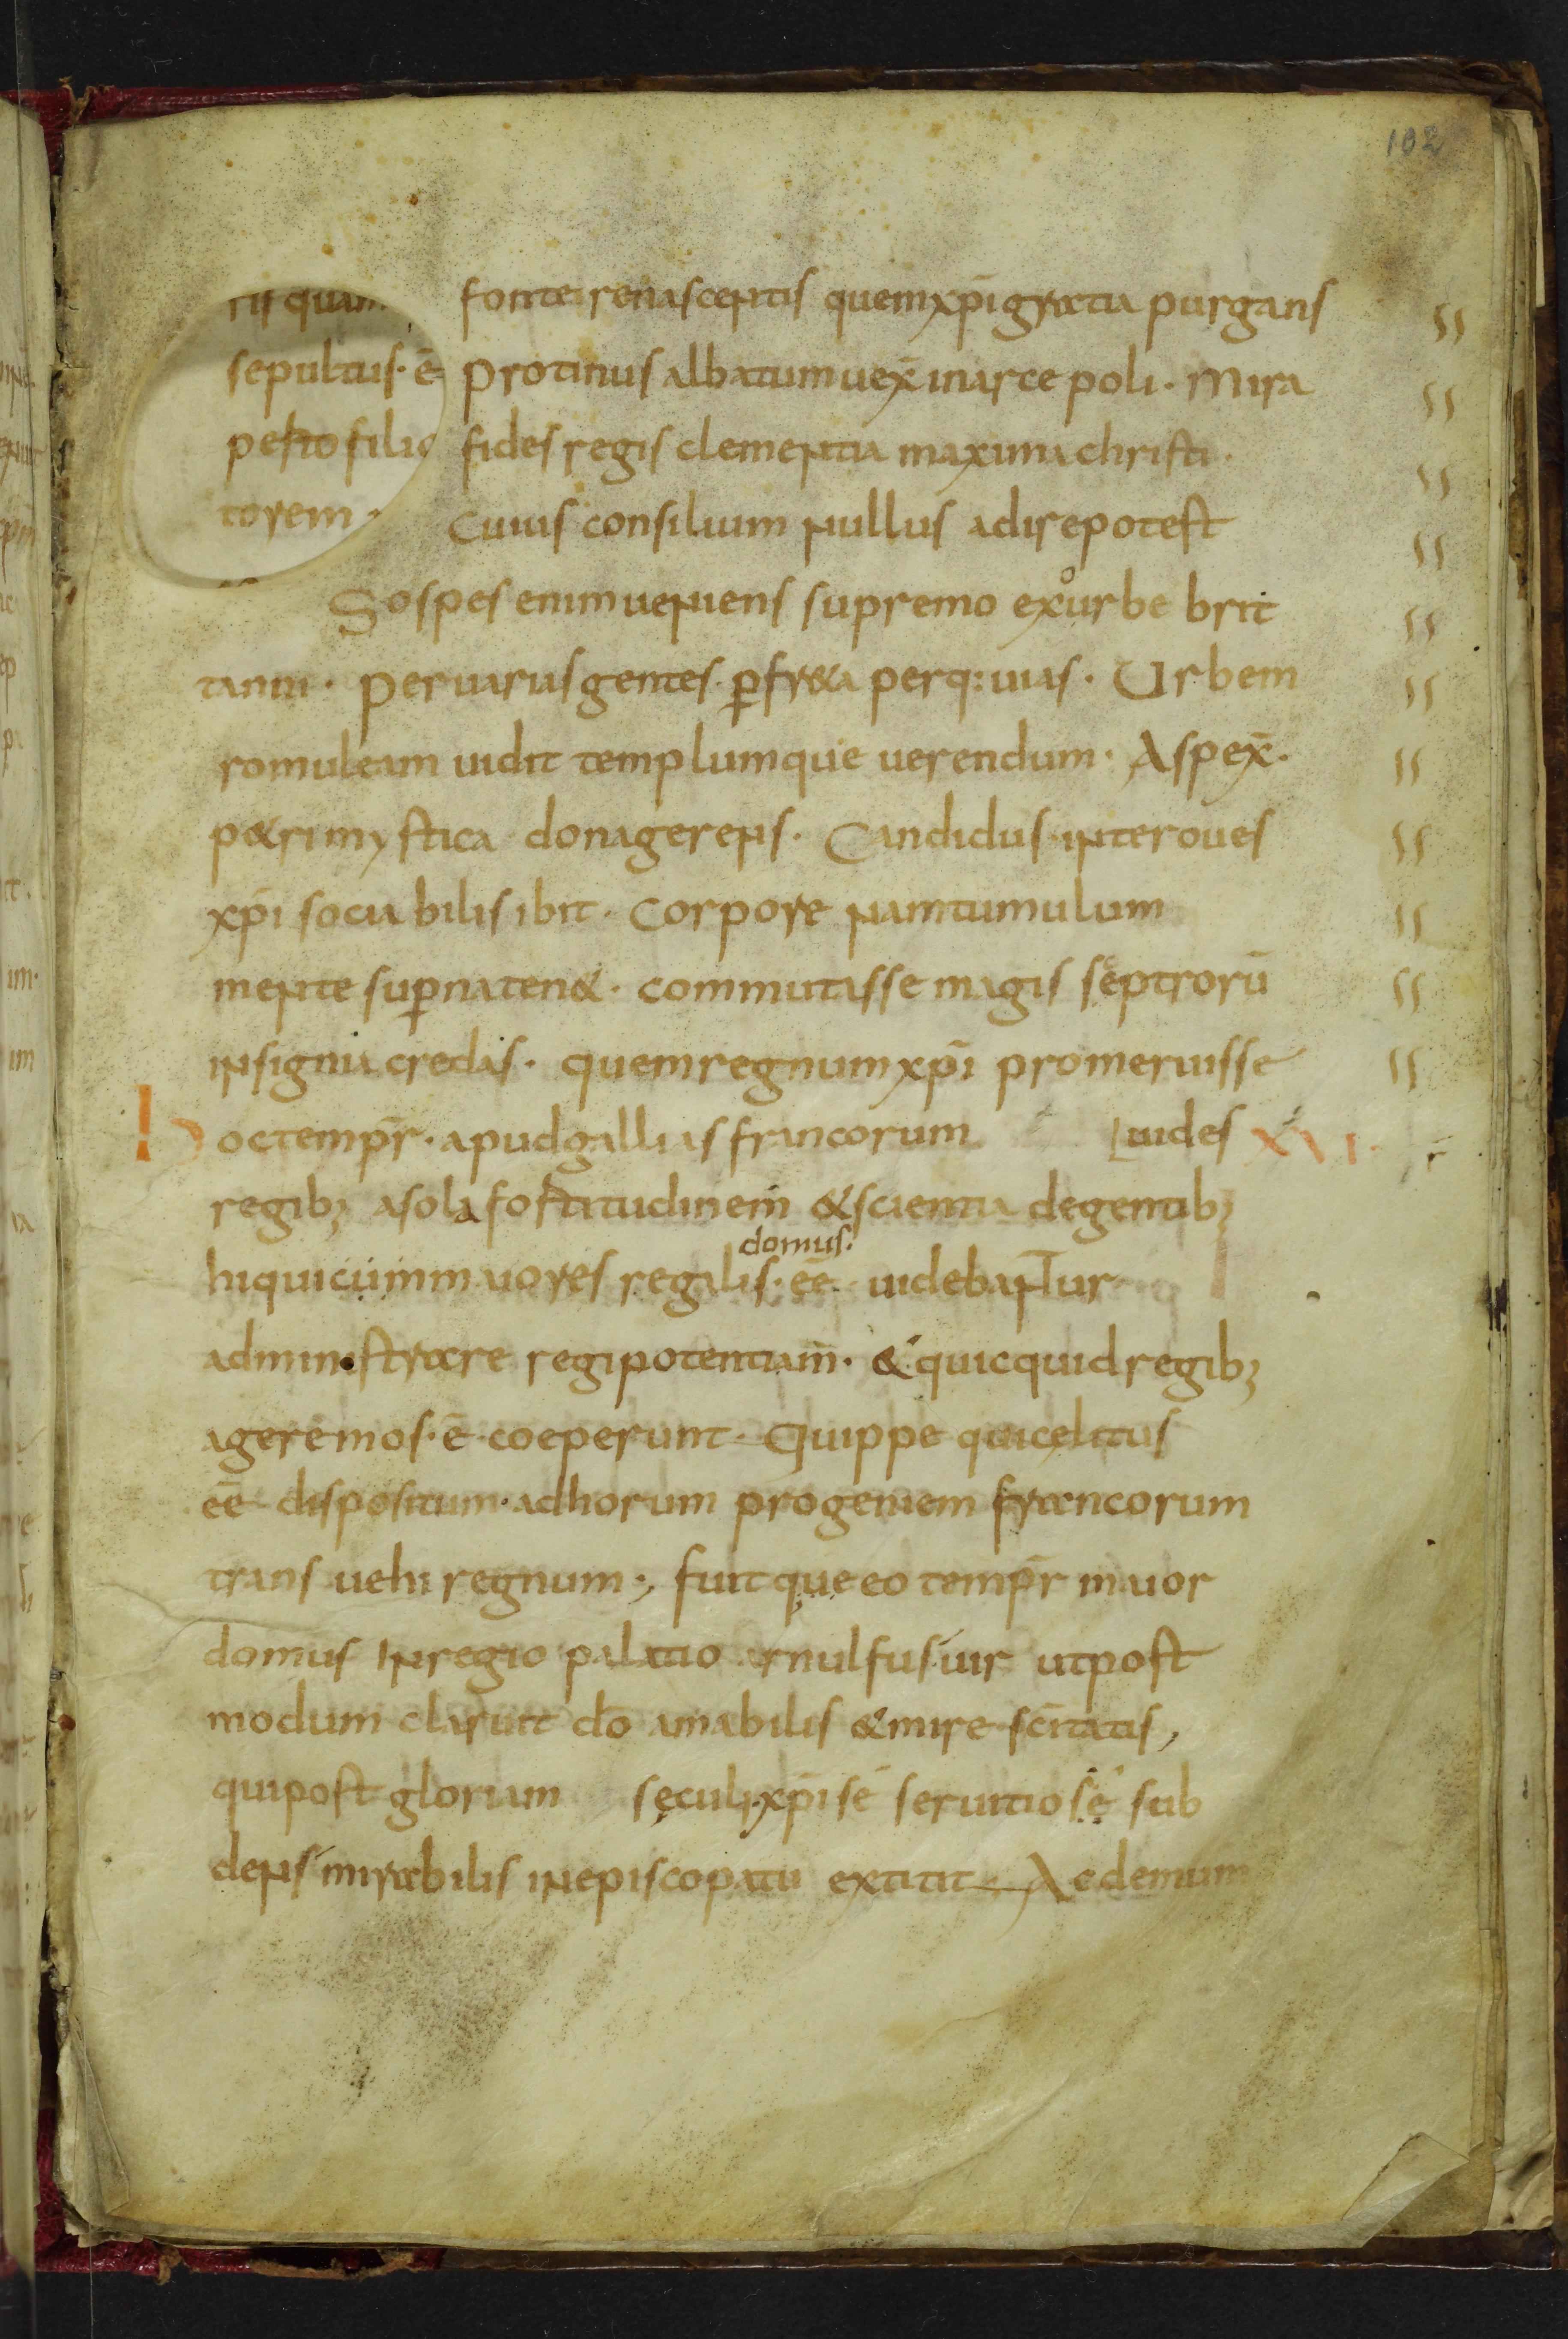 102
fonte renascentis quem xp̄i gratia purgans
protinus albatum uex̄ in arce poli · Mira
fides regis clementia maxima christi ·
cuius consilium nullus adire potest
Sospes enim ueniens supremo ex urbe brit
tanni · per uarias gentes · ꝑ freta perq: uias · Urbem
romuleam uidit templumque uerendum · Aspex̄ ·
petri mystica dona gerens · Candidus inter oues
xp̄i sociabilis ibit · corpore nam tumulum
mente suꝑna tenet · commutasse magis septrorū
insignia credas · quem regnum xp̄i promeruisse
hoc temp̄r · apud gallias francorum uides XVI ·
regib; a sola fortitudinem & scientia degentib;
domus ·
hi qui cum maiores regalis · ēē uidebantur
administrare regi potentiam · & quicquid regib;
agere mos · ē · coeperunt · Quippe qui celitus
ēē dispositum · ad horum progeniem francorum
trans uehi regnum ·, fuit que eo temp̄r maior
domus in regio palatio arnulfus uir ut post
modum claruit dō amabilis & mire sc̄itatis,
qui post gloriam sęculi · xp̄i se seruitio se sub
dens mirabilis in episcopatu extitit · Ac demum
sepultus · ē
pesto filio
torem ·